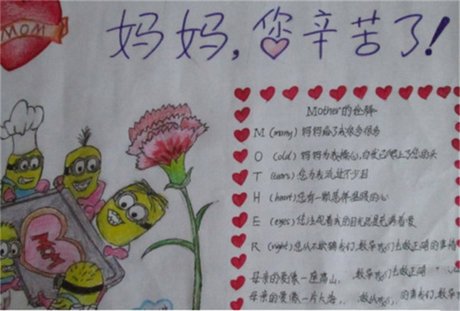 MOM
妈妈,您辛苦了!
Mother的诠释
M (many) 妈妈给了我很多很多
O (old) 妈妈为我操心,白发已爬上了您的头
T (tears) 您为我流过不少泪
H (heart) 您有一颗慈祥温暖的心
E (eyes) 您注视着我的目光总是充满着爱
R (right) 您从不欺骗我们,教导我们去做正确的事情
母亲的爱像一座高山,教导我们去做正确
母亲的爱像一片大海,
MOM